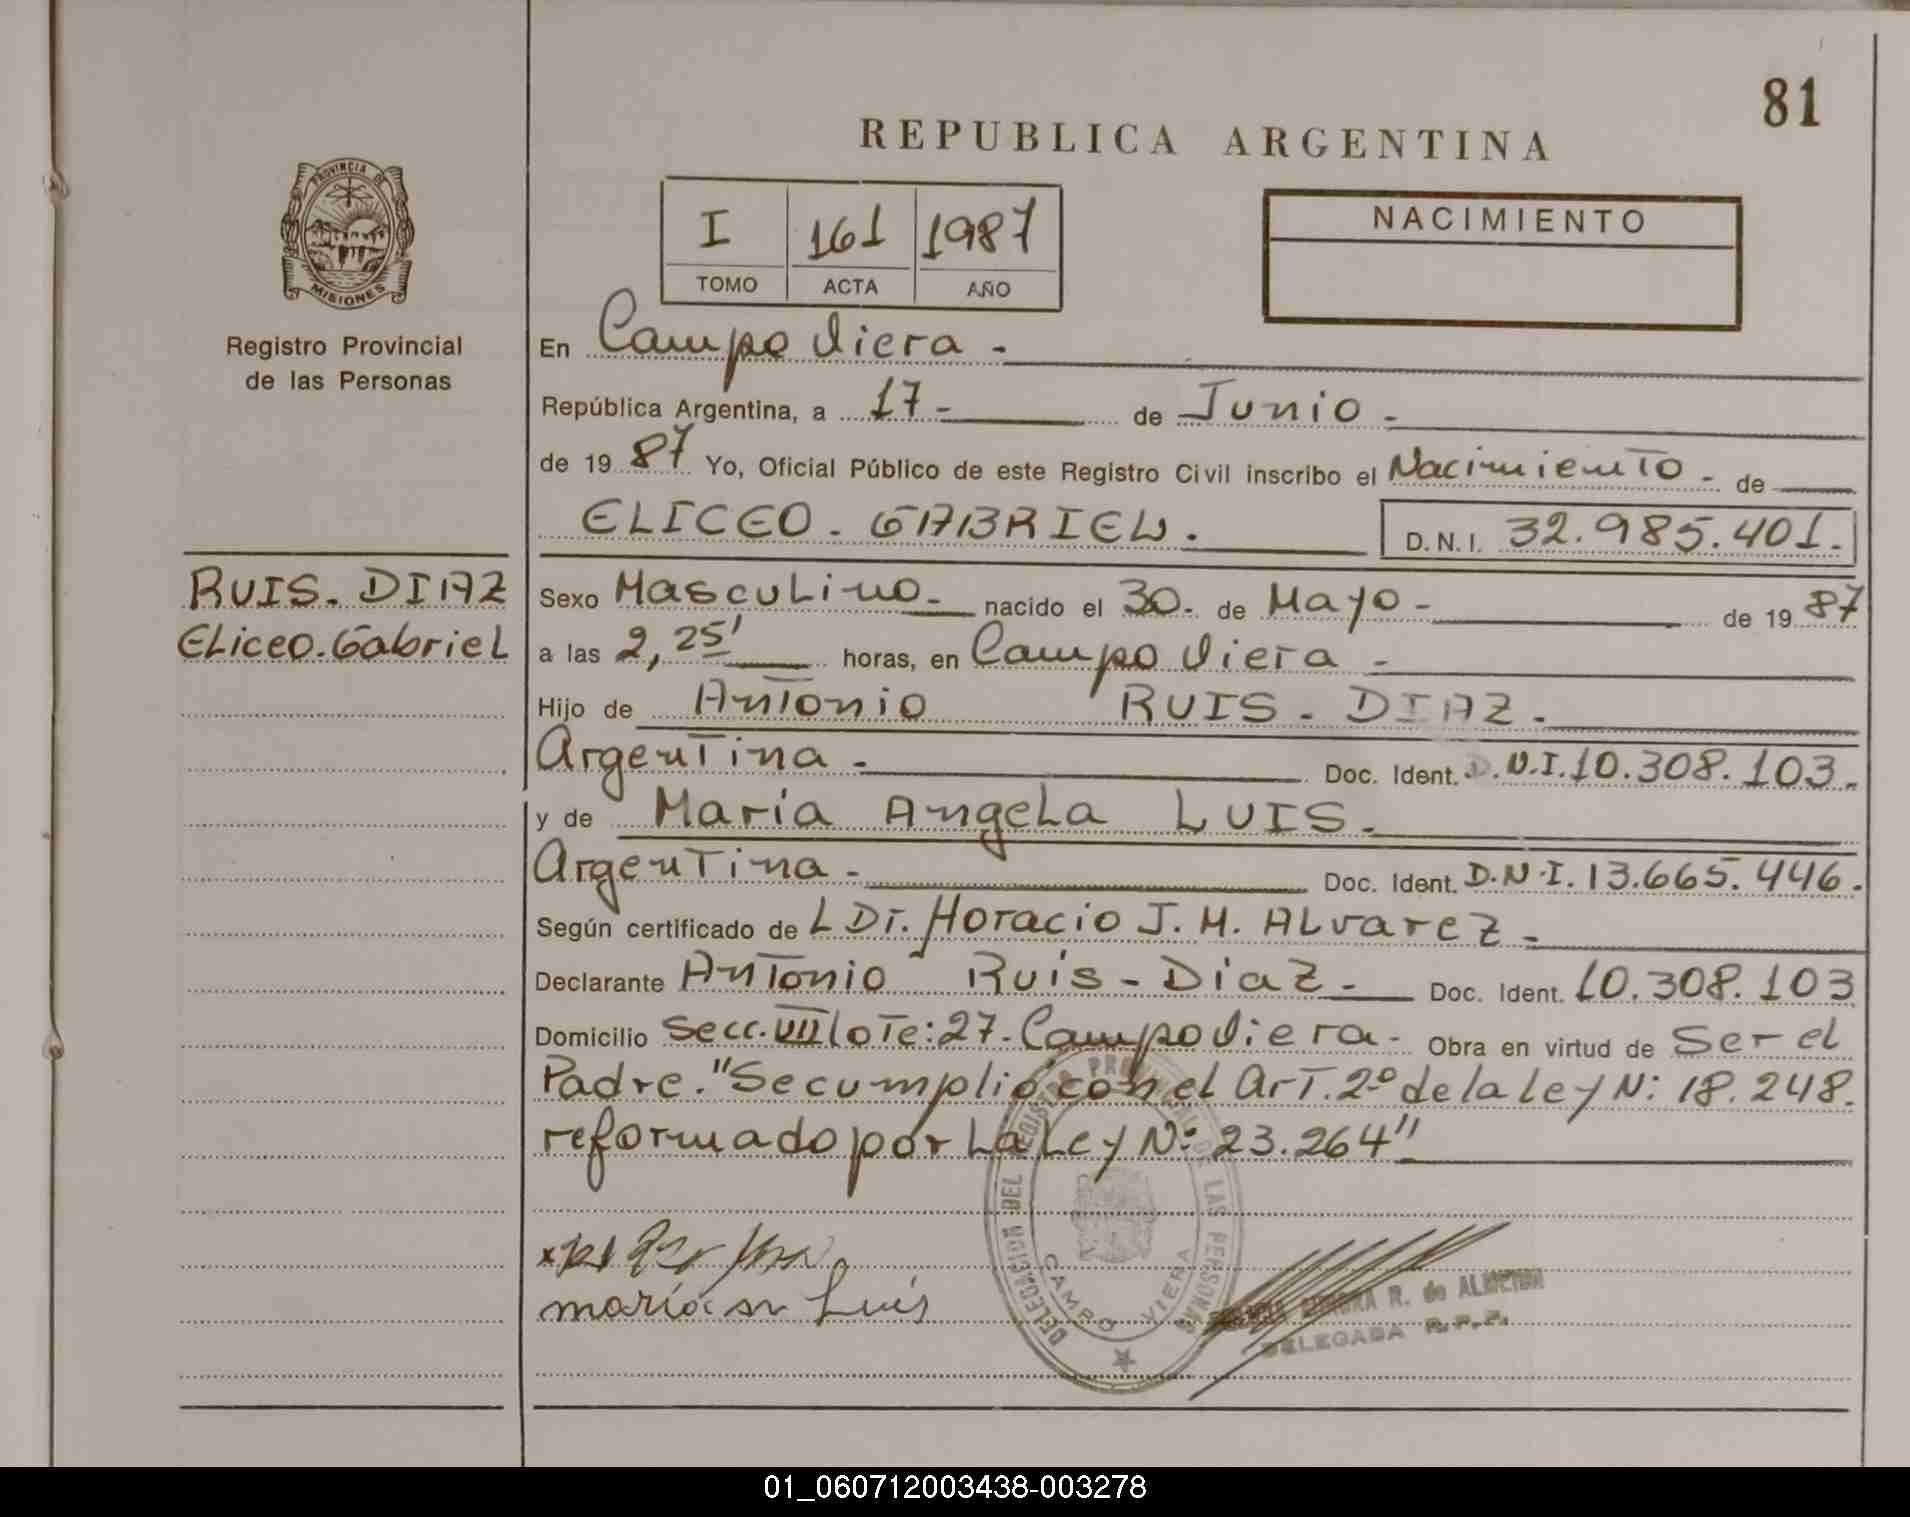 81
REPUBLICA ARGENTINA
PROVINCIA DE
MISIONES
Registro Provincial
de las Personas
I 161 1987
TOMO ACTA AÑO
NACIMIENTO
En Campo Viera -
República Argentina, a 17- de Junio -
de 19 87 Yo, Oficial Público de este Registro Civil inscribo el Nacimiento - de
ELICEO. GABRIEL. D.N.I. 32.985.401.
RUIS. DIAZ
ELiceo. Gabriel
Sexo MascuLino - nacido el 30- de Mayo - de 19 87
a las 2,25' horas, en Campo Viera -
Hijo de Antonio RUIS - DIAZ -
Argentina - Doc. Ident. D.N.I.10.308.103.
y de María AngeLa LUIS -
Argentina - Doc. Ident. D.N.I. 13.665.446.
Según certificado de L Dr. Horacio J. M. ALvarez -
Declarante Antonio Ruis - Diaz - Doc. Ident. 10.308.103
Domicilio Secc. VIII Lote: 27- Campo Viera - Obra en virtud de Ser el
Padre. "Se cumplió con el Art. 2º de la Ley N: 18.248.
reformado por La Ley Nº 23.264"
maría Luis
DELEGACION DEL REGISTRO PROVINCIAL DE LAS PERSONAS
CAMPO VIERA
R. de ALMEIDA
DELEGADA R.P.P.
01_060712003438-003278